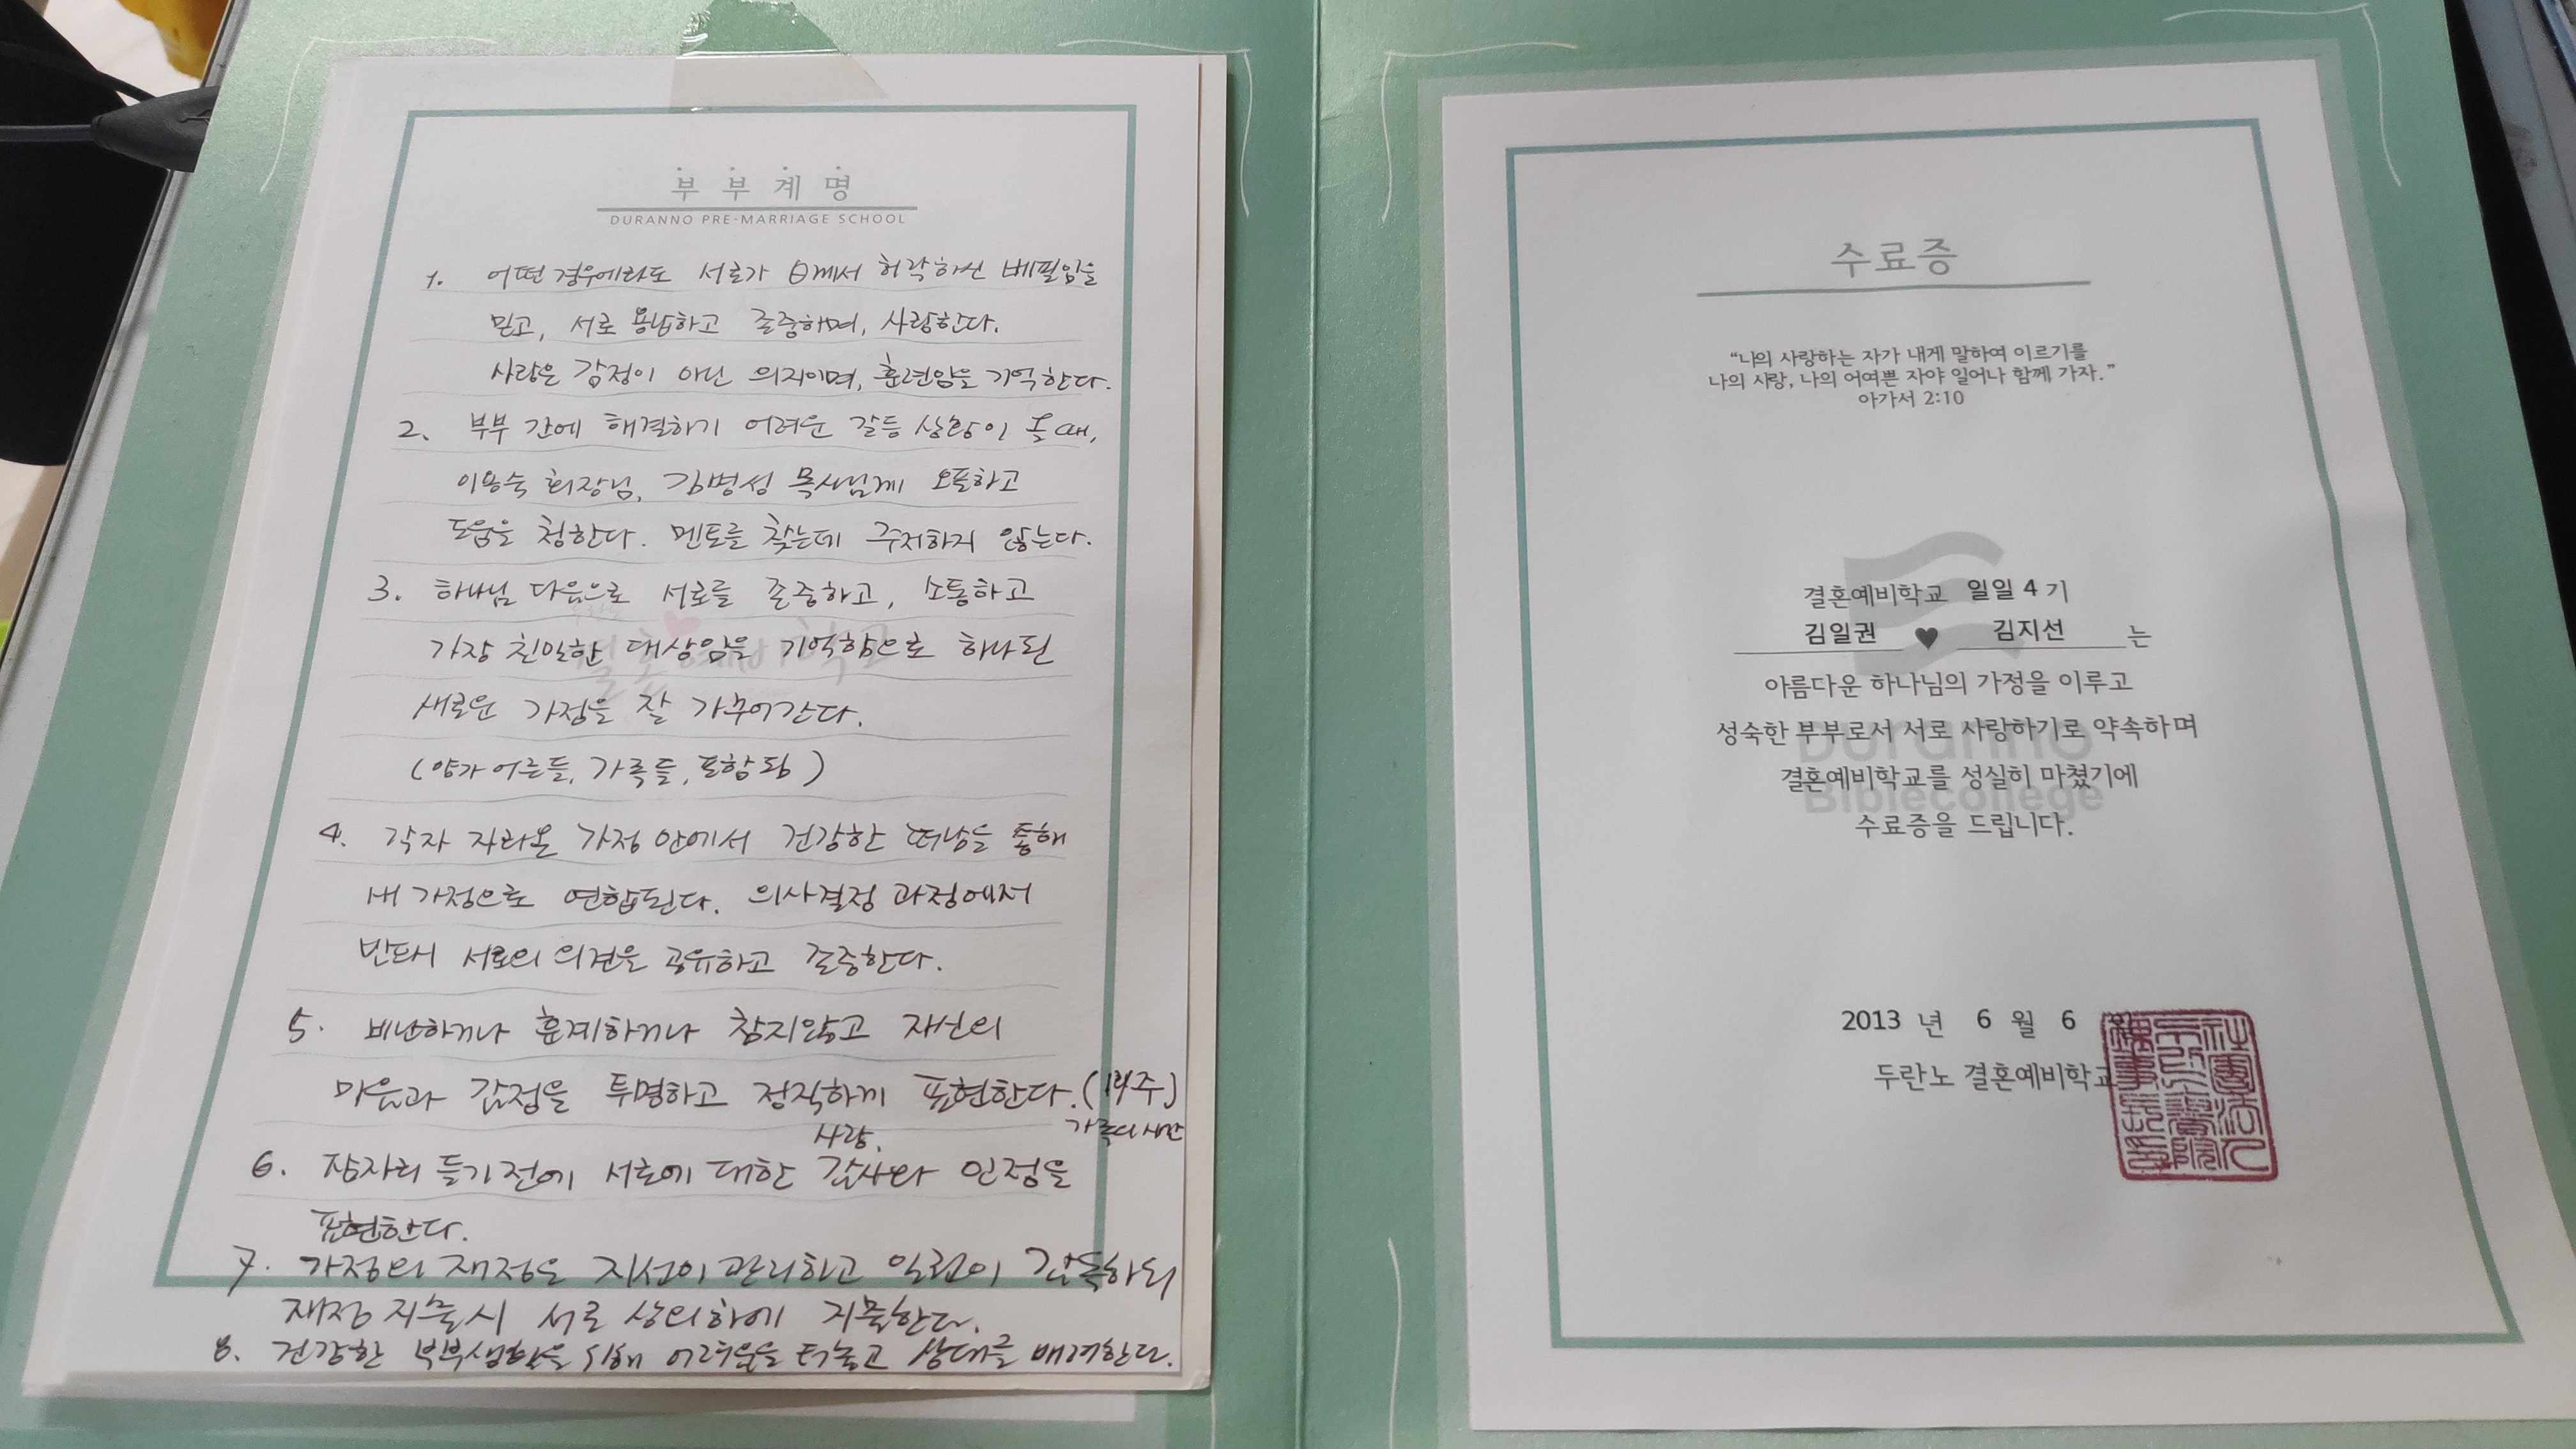 부부계명
DURANNO PRE-MARRIAGE SCHOOL
1. 어떤 경우에라도 서로가 께서 허락하신 베필임을
믿고, 서로 용납하고 존중하며, 사랑한다.
사랑은 감정이 아닌 의지이며, 훈련임을 기억한다.
2. 부부 간에 해결하기 어려운 갈등 상황이 올때,
이용숙 회장님, 김명성 목사님께 오픈하고
도움을 청한다. 멘토를 찾는데 주저하지 않는다.
3. 하나님 다음으로 서로를 존중하고, 소통하고
가장 친밀한 대상임을 기억함으로 하나된
새로운 가정을 잘 가꾸어간다.
(양가 어른들, 가족들, 포함됨)
4. 각자 자라온 가정 안에서 건강한 떠남을 통해
새 가정으로 연합된다. 의사결정 과정에서
반드시 서로의 의견을 공유하고 존중한다.
5. 비난하거나 훈계하거나 참지않고 자신의
마음과 감정을 투명하고 정직하게 표현한다. (매주)
사랑,
6. 잠자리 들기전에 서로에 대한 감사와 인정을
표현한다.
7. 가정의 재정은 지선이 관리하고 일권이 감독하되
재정 지출시 서로 상의하에 지출한다.
8. 건강한 부부생활을 위해 어려움을 터놓고 상대를 배려한다.
수료증
“나의 사랑하는 자가 내게 말하여 이르기를
나의 사랑, 나의 어여쁜 자야 일어나 함께 가자.”
아가서 2:10
결혼예비학교 일일 4 기
김일권 ♥ 김지선 는
아름다운 하나님의 가정을 이루고
성숙한 부부로서 서로 사랑하기로 약속하며
결혼예비학교를 성실히 마쳤기에
수료증을 드립니다.
Duranno
Biblecollege
2013 년 6 월 6 일
두란노 결혼예비학교